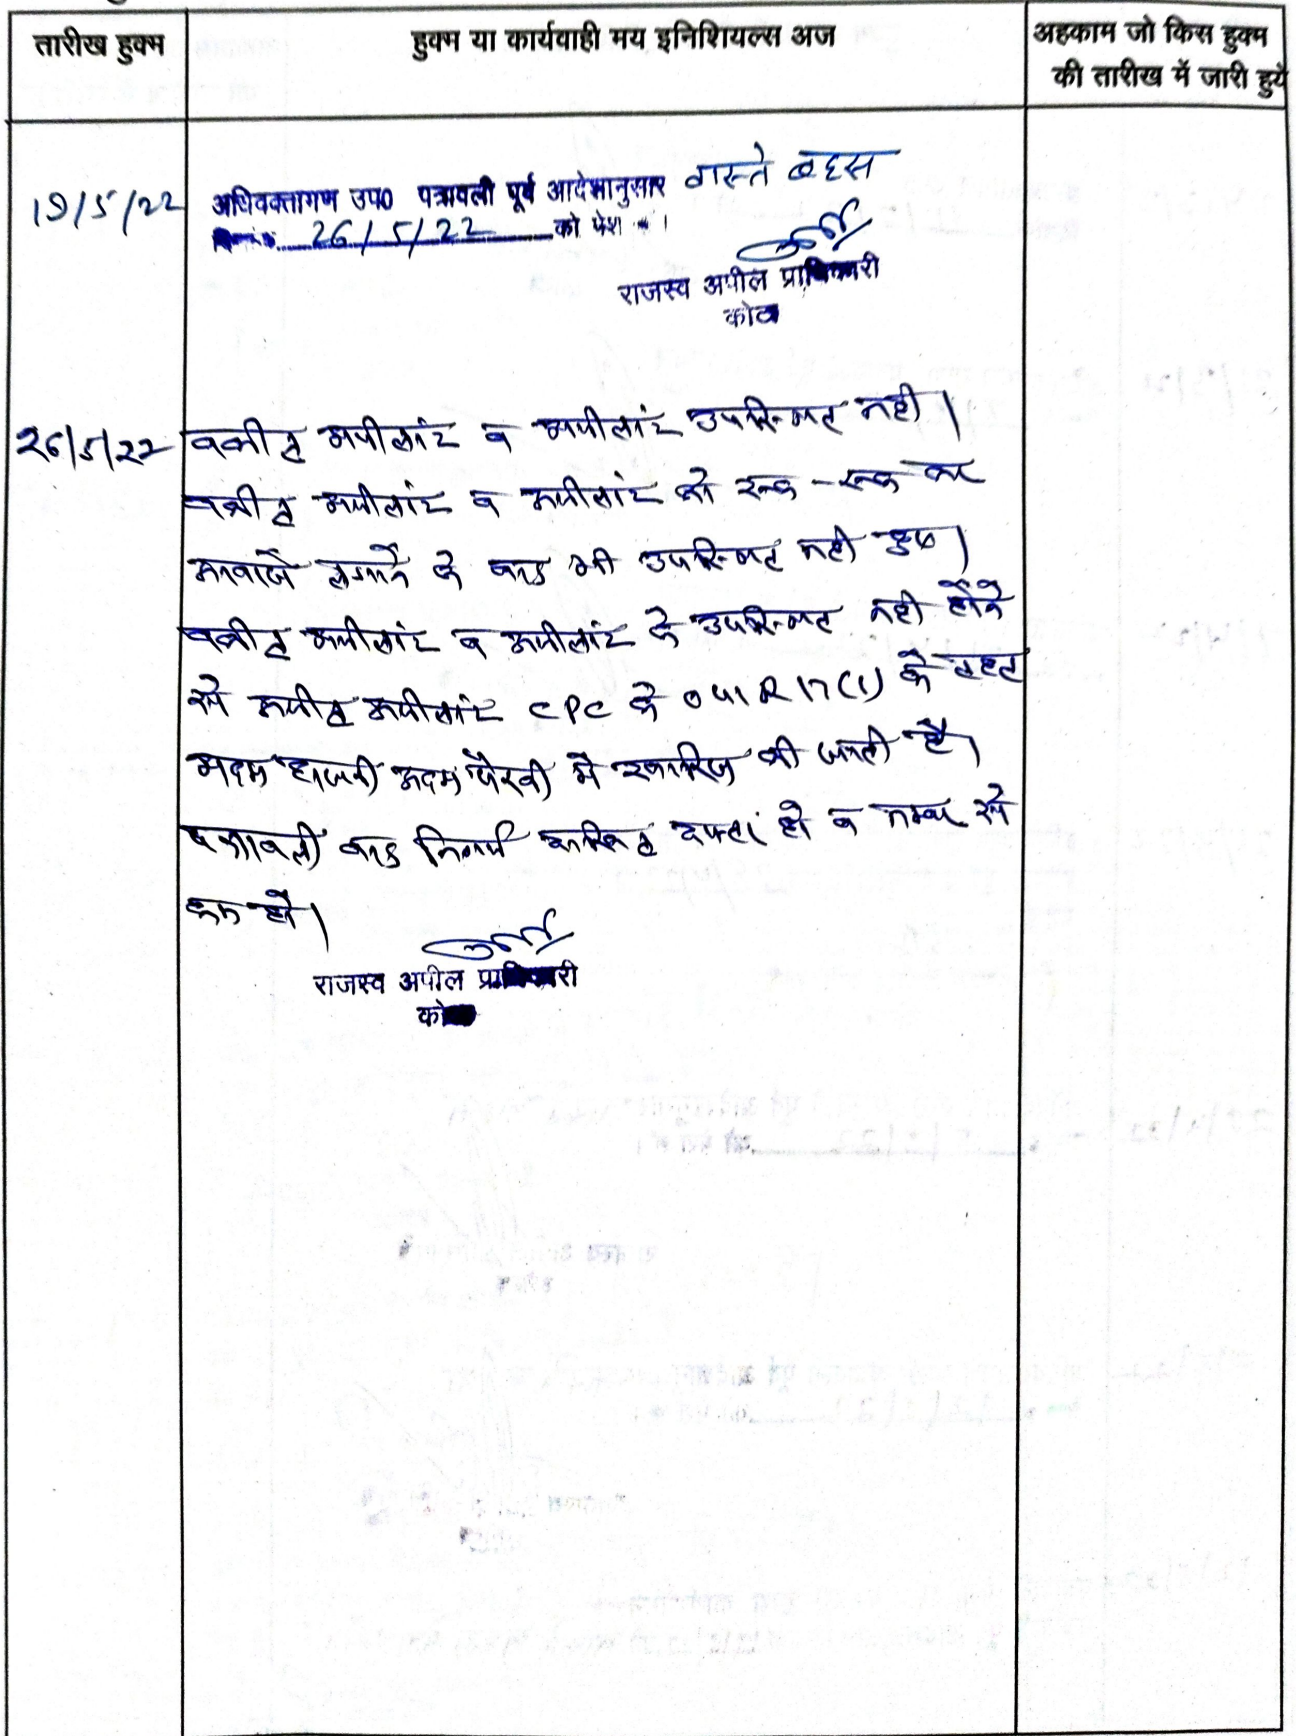 तारीख हुक्म
हुक्म या कार्यवाही मय इनिशियल्स अज
अहकाम जो किस हुक्म
की तारीख में जारी हुये
19/5/22
अधिवक्तागण उप0 पत्रावली पूर्व आदेशानुसार वास्ते बहस
26/5/22 को पेश
राजस्व अपील प्राधिकारी
कोटा
26/5/22
वकील अपीलांट व अपीलांट उपस्थित नही।
वकील अपीलांट व अपीलांट को रूक-रूक कर
आवाजें लगाने के बाद भी उपस्थित नही हुए।
वकील अपीलांट व अपीलांट के उपस्थित नही होने
से अपील अपीलांट CPC के O 41 R 17 (1) के तहत
अदम हाजरी अदम पैरवी में खारिज की जाती है।
पत्रावली बाद निर्णय दाखिल दफ्तर हो व नम्बर से
कम हो।
राजस्व अपील प्राधिकारी